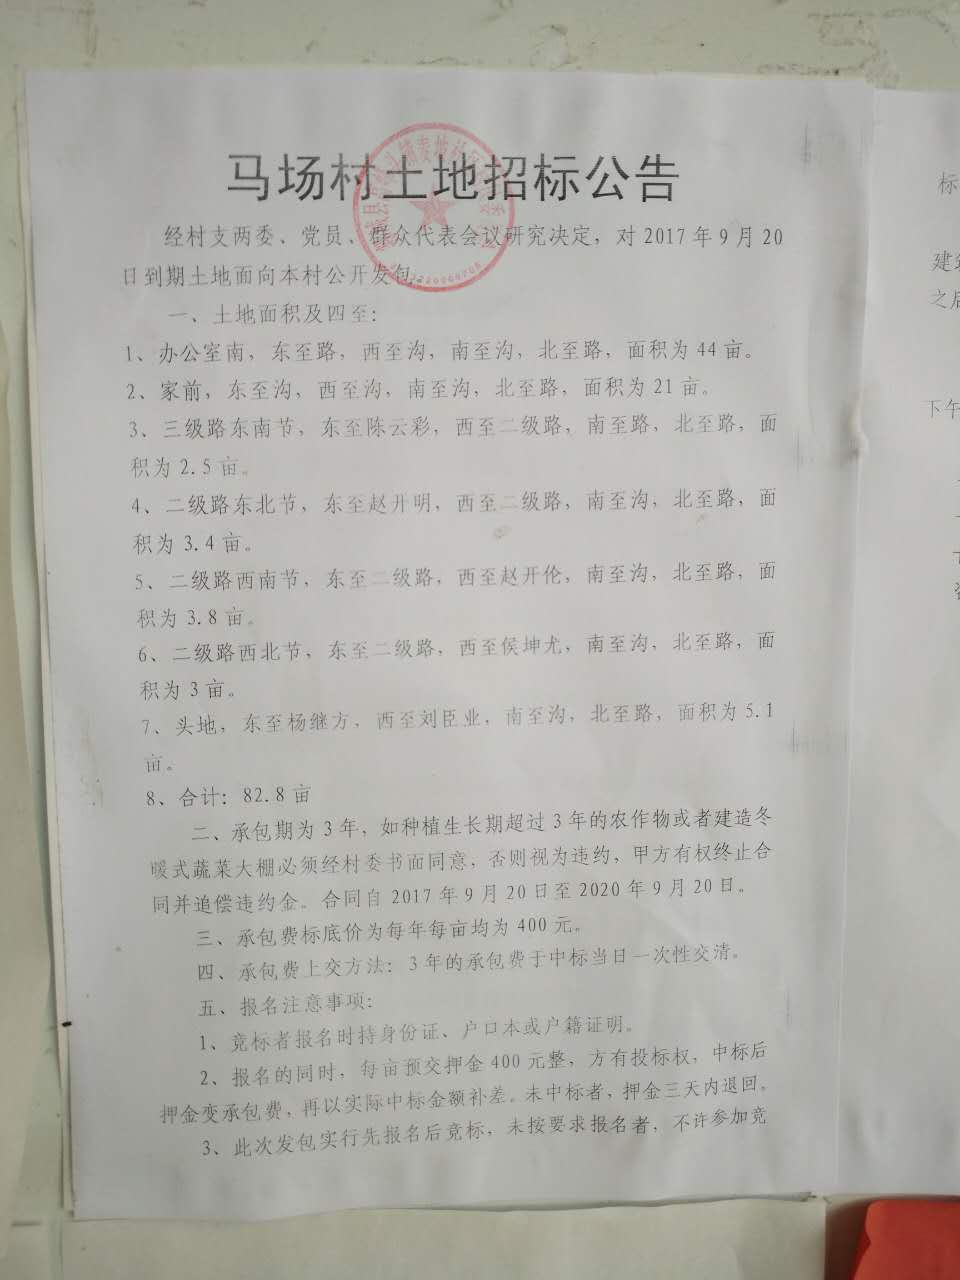 马场村土地招标公告
经村支两委、党员、群众代表会议研究决定，对 2017 年 9 月 20
日到期土地面向本村公开发包。
一、土地面积及四至：
1、办公室南，东至路，西至沟，南至沟，北至路，面积为 44 亩。
2、家前，东至沟，西至沟，南至沟，北至路，面积为 21 亩。
3、三级路东南节，东至陈云彩，西至二级路，南至路，北至路，面
积为 2.5 亩。
4、二级路东北节，东至赵开明，西至二级路，南至沟，北至路，面
积为 3.4 亩。
5、二级路西南节，东至二级路，西至赵开伦，南至沟，北至路，面
积为 3.8 亩。
6、二级路西北节，东至二级路，西至侯坤尤，南至沟，北至路，面
积为 3 亩。
7、头地，东至杨继方，西至刘臣业，南至沟，北至路，面积为 5.1
亩。
8、合计：82.8 亩
二、承包期为 3 年，如种植生长期超过 3 年的农作物或者建造冬
暖式蔬菜大棚必须经村委书面同意，否则视为违约，甲方有权终止合
同并追偿违约金。合同自 2017 年 9 月 20 日至 2020 年 9 月 20 日。
三、承包费标底价为每年每亩均为 400 元。
四、承包费上交方法：3 年的承包费于中标当日一次性交清。
五、报名注意事项：
1、竞标者报名时持身份证、户口本或户籍证明。
2、报名的同时，每亩预交押金 400 元整，方有投标权，中标后
押金变承包费，再以实际中标金额补差。未中标者，押金三天内退回。
3、此次发包实行先报名后竞标，未按要求报名者，不许参加竞
标
建
之后
下午